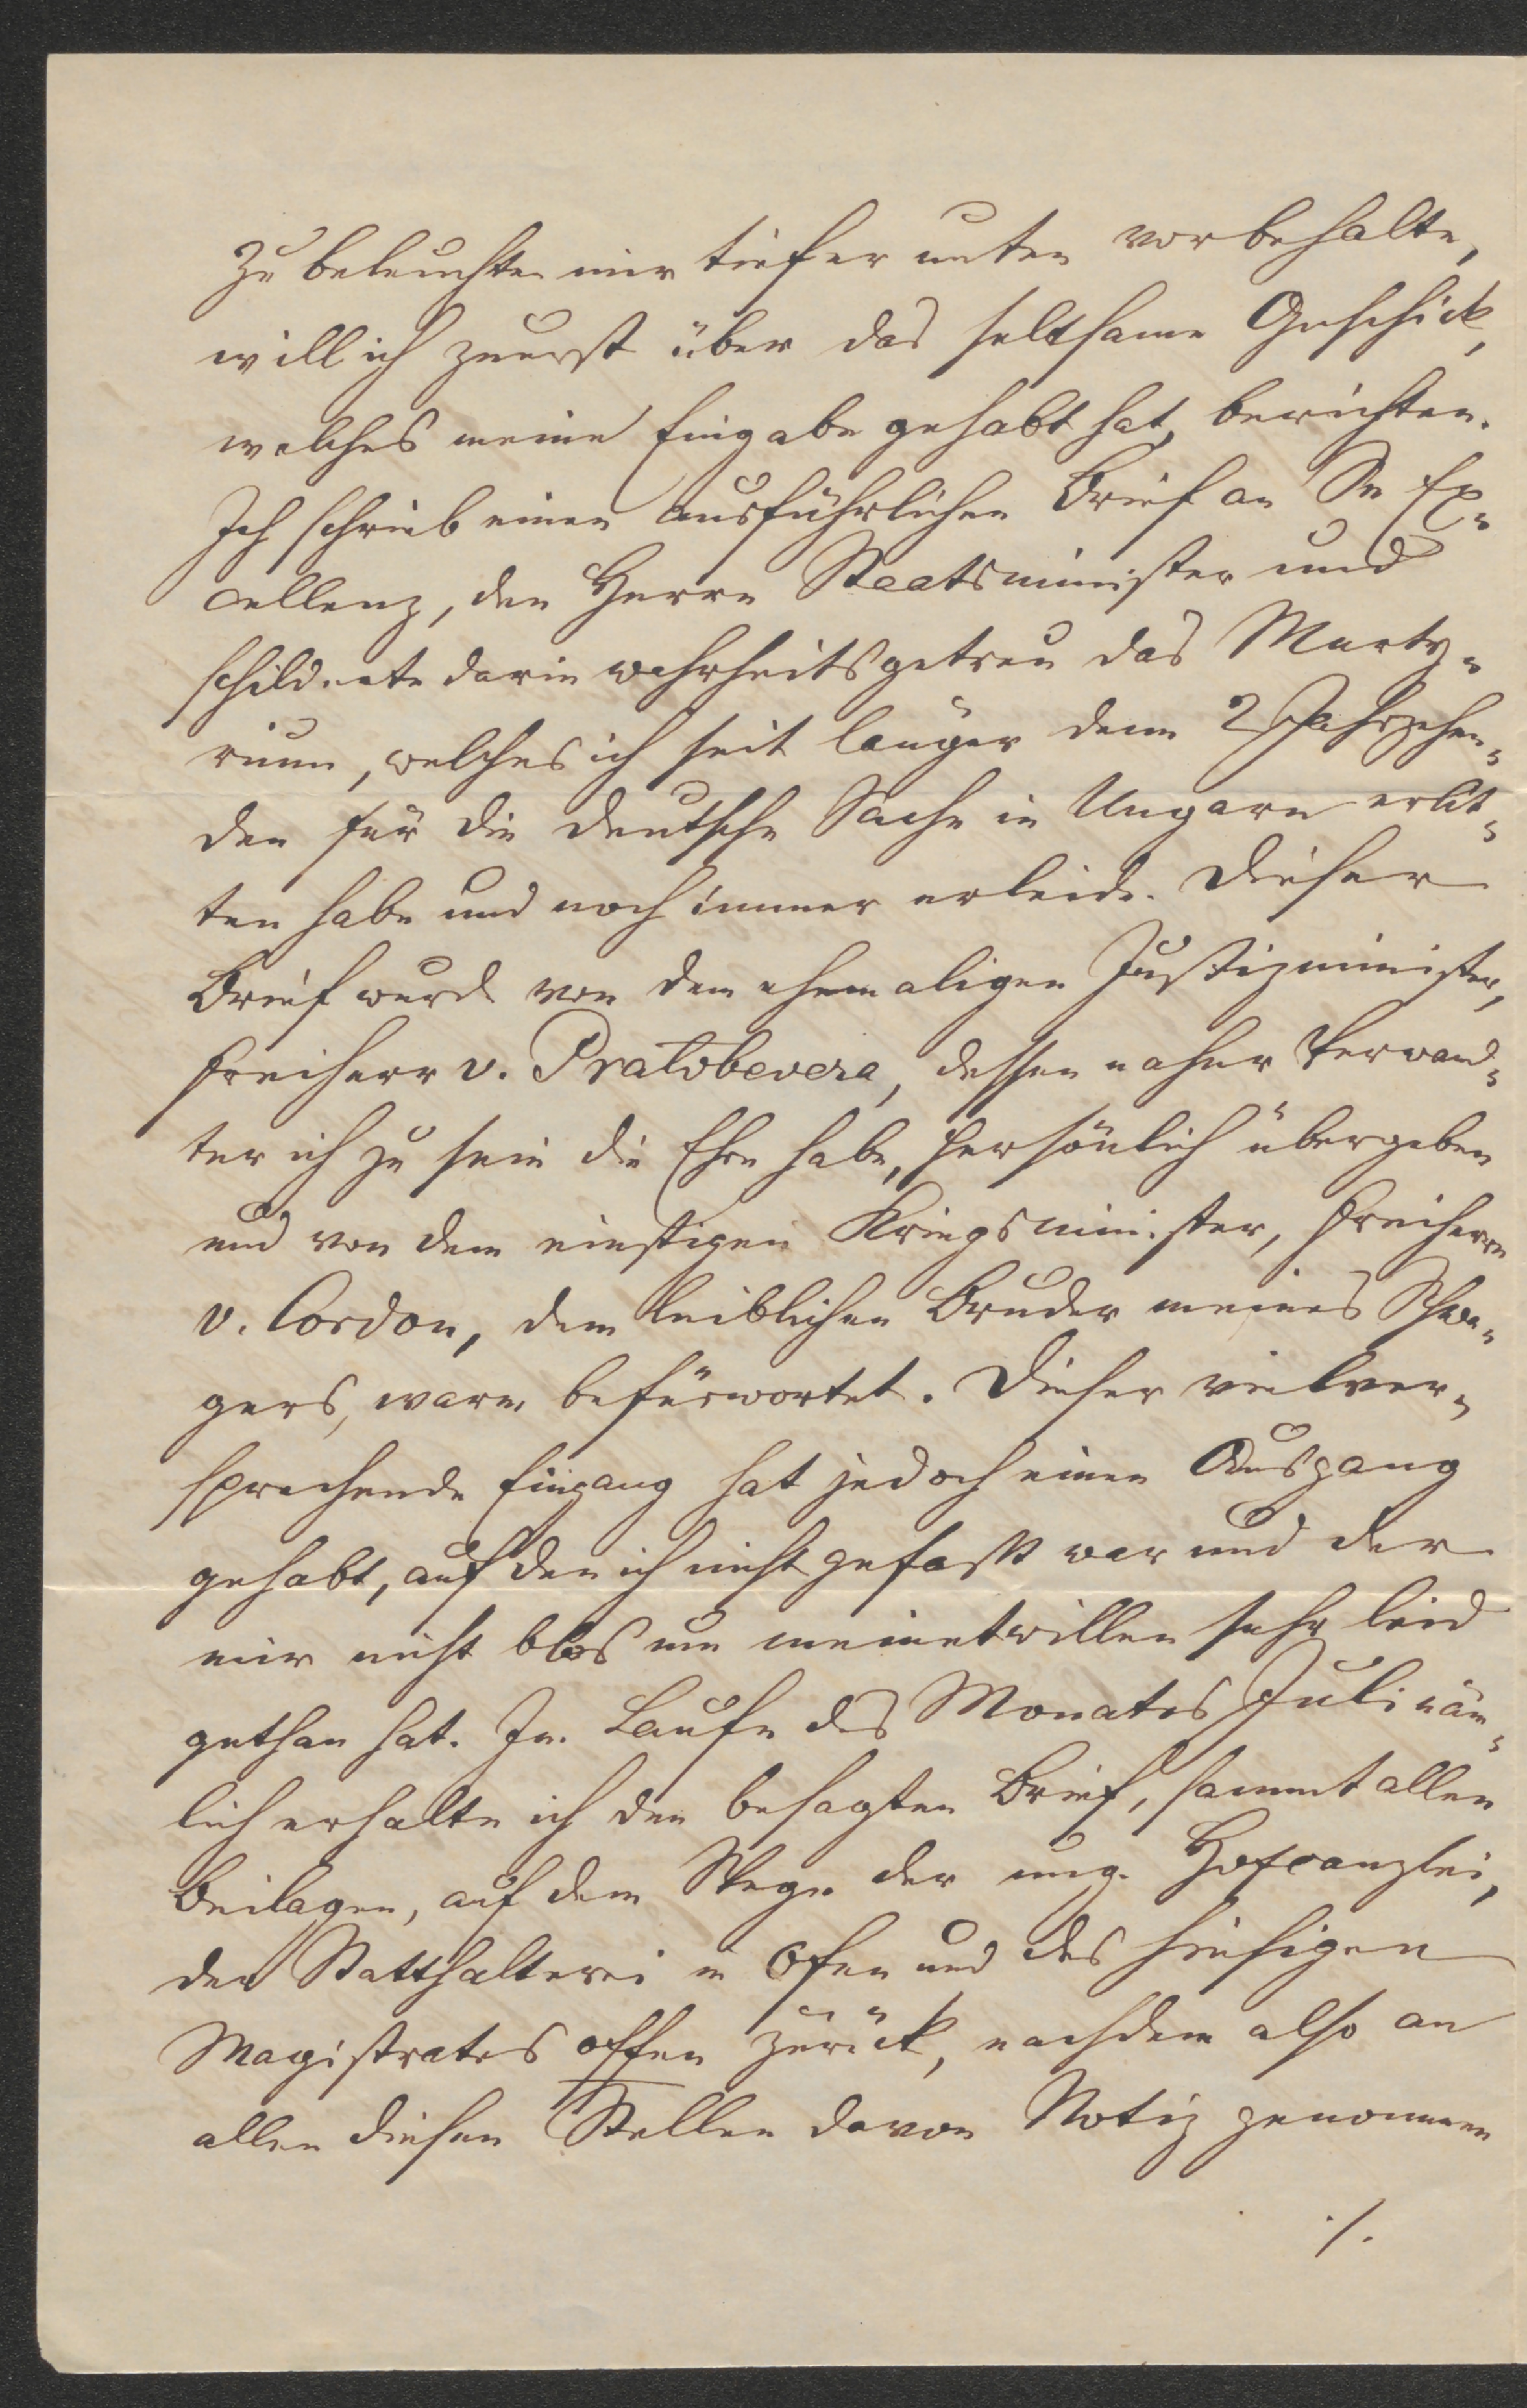 zu beleuchten mir tiefer unten vorbehalte,
will ich zuerst über das seltsame Geschick,
welches meine Eingabe gehabt hat, berichten.
Ich schrieb einen ausführlichen Brief an Se Ex-
cellenz, den Herrn Staatsminister und
schilderte darin wahrheitsgetreu das Marty-
rium, welches ich seit länger denn 2 Jahrzehen-
den für die deutsche Sache in Ungarn erlit-
ten habe und noch immer erleide. Dieser
Brief wurde von dem ehemaligen Justizminister,
Freiherr v. Pratobevera, dessen naher Verwand-
ter ich zu sein die Ehre habe, persönlich übergeben
und von dem einstigen Kriegsminister, Freiherrn
v. Cordon, dem leiblichen Bruder meines Schwa-
gers, warm befürwortet. Dieser vielver-
sprechende Eingang hat jedoch einen Ausgang
gehabt, auf den ich nicht gefaßt war und der
mir nicht blos um meinetwillen sehr leid
gethan hat. Im Laufe des Monates Juli näm-
lich erhalte ich den besagten Brief, sammt allen
Beilagen, auf dem Wege der ung. Hofcanzlei,
der Statthalterei in Ofen und des hiesigen
Magistrates offen zurück, nachdem also an
allen diesen Stellen davon Notiz genommen
./.